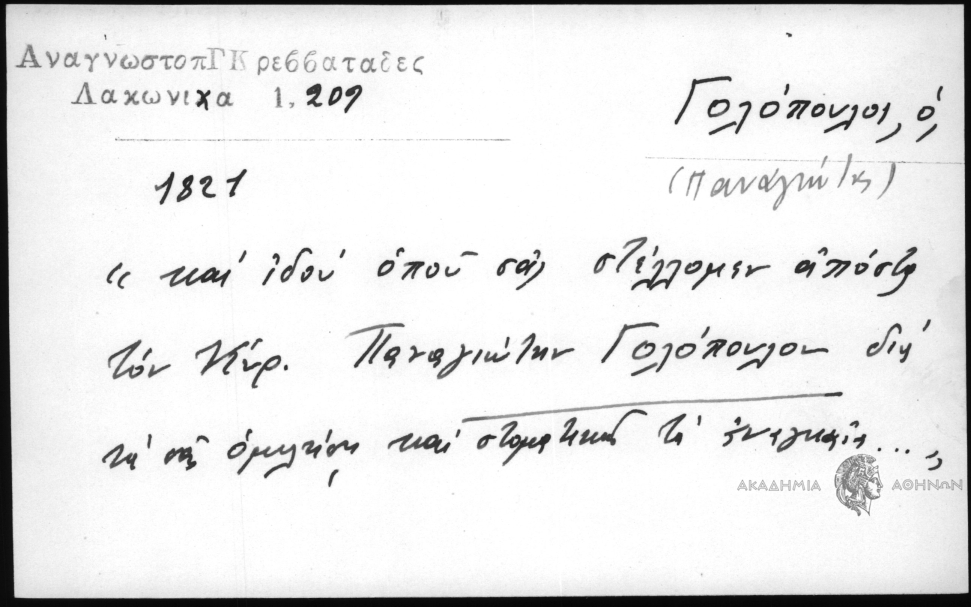 ΑναγνωστοπΓΚρεββαταδες
Λακωνικα 1, 209
Γολόπουλος, ὁ,
(Παναγιώτης)
1821
" καί ἰδού ὁπού σᾶς στέλλομεν ἀπόστ
τόν Κύρ. Παναγιώτην Γολόπουλον διά
νά σᾶς ὁμιλήση καί στοματικῶς τά ἀναγκαῖα ... "
ΑΚΑΔΗΜΙΑ ΑΘΗΝΩΝ